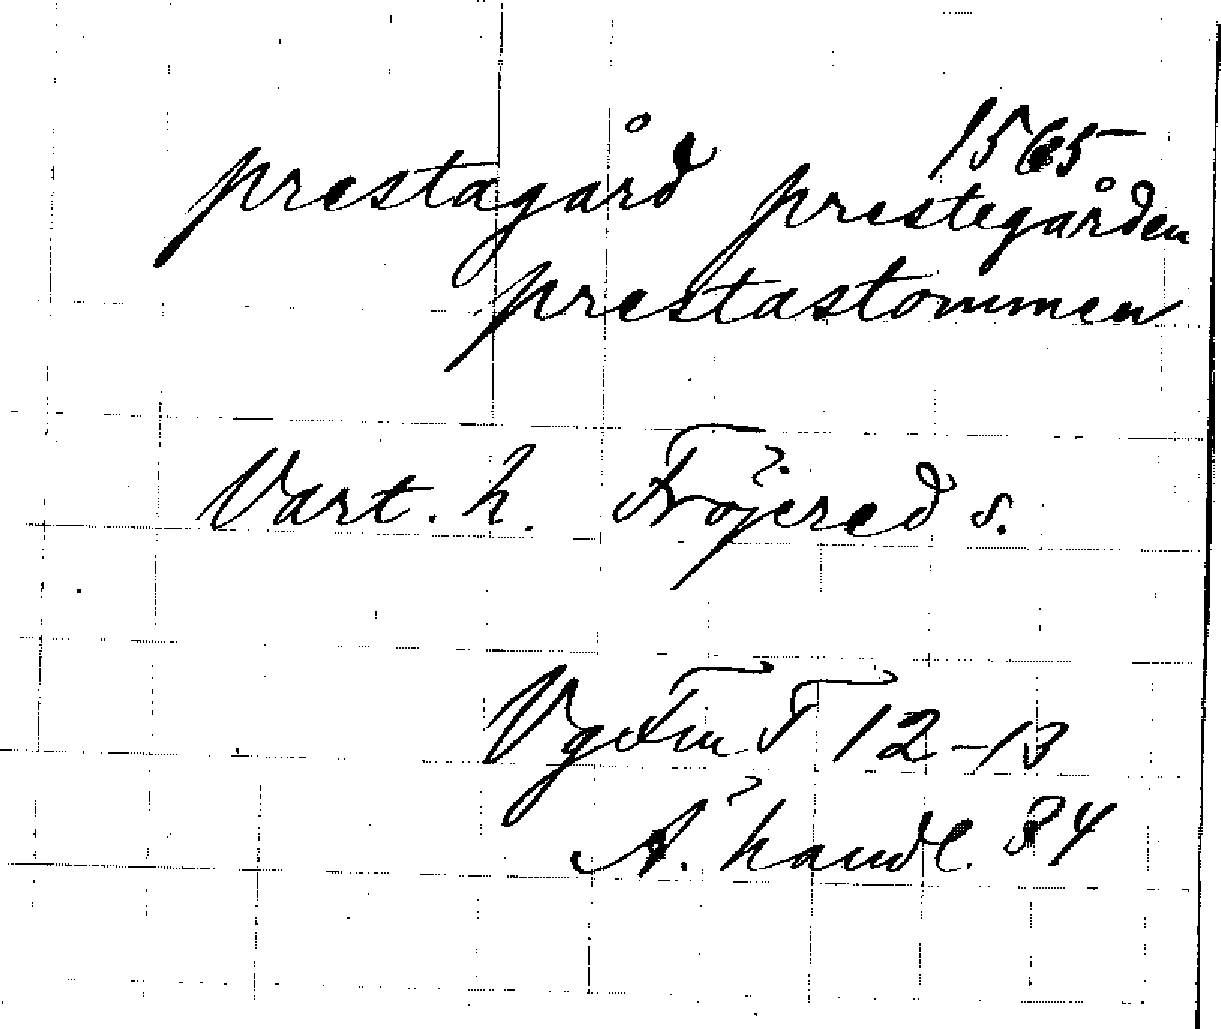 1565
prestagård prestegården
prestastommen
Vart. h. Fröjered s.
VgFm I 12-13
Ä. handl. 34